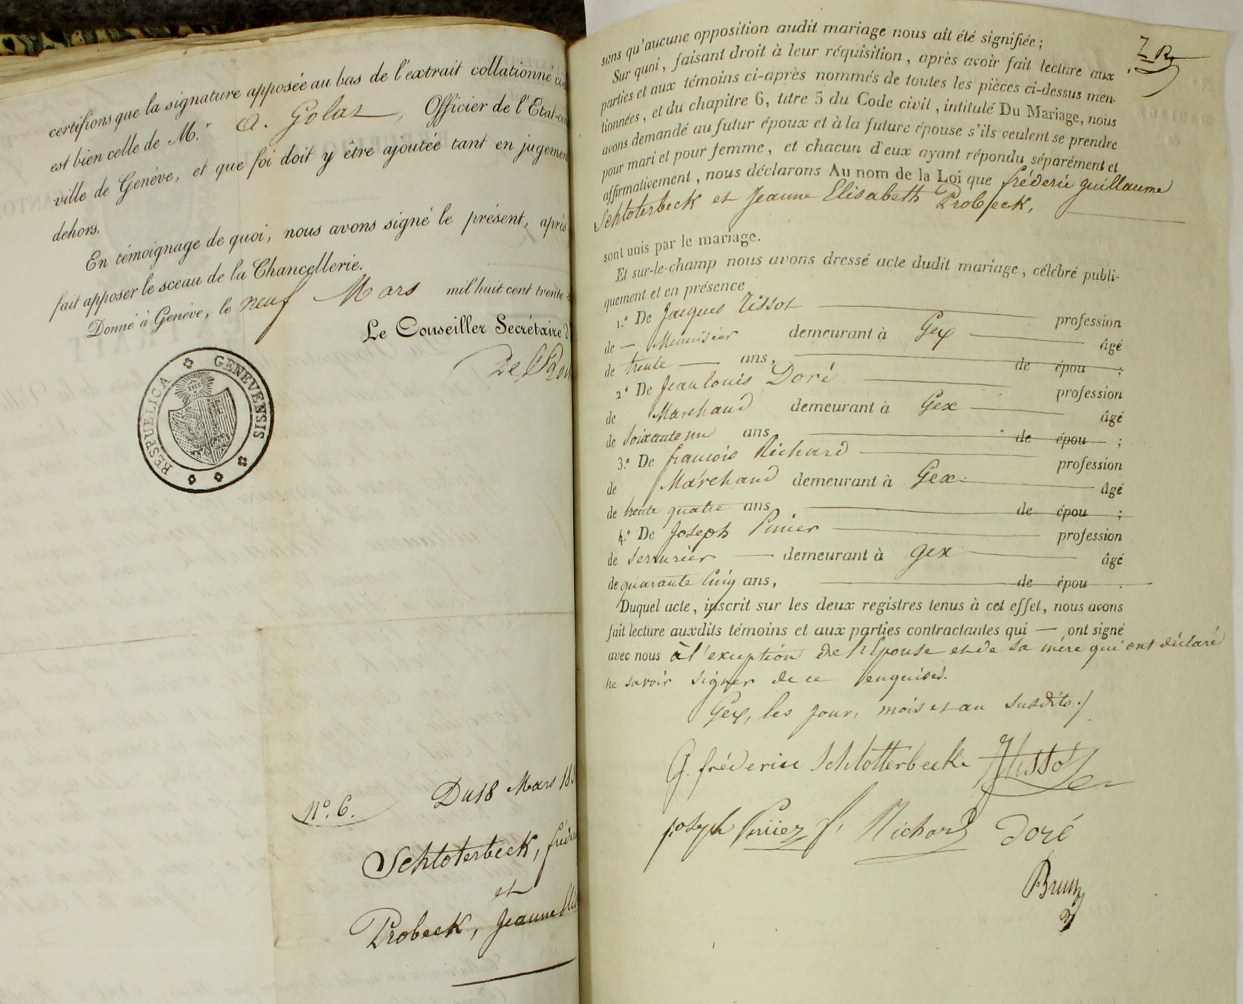 certifions que la signature apposée au bas de l'extrait collationné
est bien celle de M.r A. Golaz, Officier de l'Etat-
ville de Genève, et que foi doit y être ajoutée tant en jugemen
dehors.
En témoignage de quoi, nous avons signé le présent, après
fait apposer le sceau de la Chancellerie.
Donné à Genève, le neuf Mars mil huit cent trente
Le Conseiller Secrétaire d
RESPUBLICA GENEVENSIS
N.o 6. Du 18 Mars 18
Schloterbeck, fréde
et
Probeck, Jeanne
sans qu'aucune opposition audit mariage nous ait été signifiée ;
Sur quoi, faisant droit à leur réquisition, après avoir fait lecture aux
parties et aux témoins ci-après nommés de toutes les pièces ci-dessus men-
tionnées, et du chapitre 6, titre 5 du Code civil, intitulé Du Mariage, nous
avons demandé au futur époux et à la future épouse s'ils veulent se prendre
pour mari et pour femme, et chacun d'eux ayant répondu séparément et
affirmativement, nous déclarons Au nom de la Loi que fréderic guillaume
Schloterbeck et Jeanne Elisabeth Probeck,
sont unis par le mariage.
Et sur-le-champ nous avons dressé acte dudit mariage, célébré publi-
quement et en présence
1.o De Jacques Tissot profession
de Menuisier demeurant à Gex âgé
de trente ans, de épou ;
2.o De Jean Louis Doré profession
de Marchand demeurant à Gex âgé
de soixante un ans de épou ;
3.o De françois Richard profession
de Marchand demeurant à Gex. âgé
de trente quatre ans de épou ;
4.o De Joseph Perrier profession
de Serrurier demeurant à gex âgé
de quarante Cinq ans, de épou .
Duquel acte, inscrit sur les deux registres tenus à cet effet, nous avons
fait lecture auxdits témoins et aux parties contractantes qui — ont signé
avec nous à l'exception de l'Epouse et de sa mère qui ont déclaré
ne savoir signer de ce enquises.
Gex, les jour, mois et an susdits.
G. fréderic Schlotterbeck JTissot
joseph Perriez f. Richard Doré
Brun